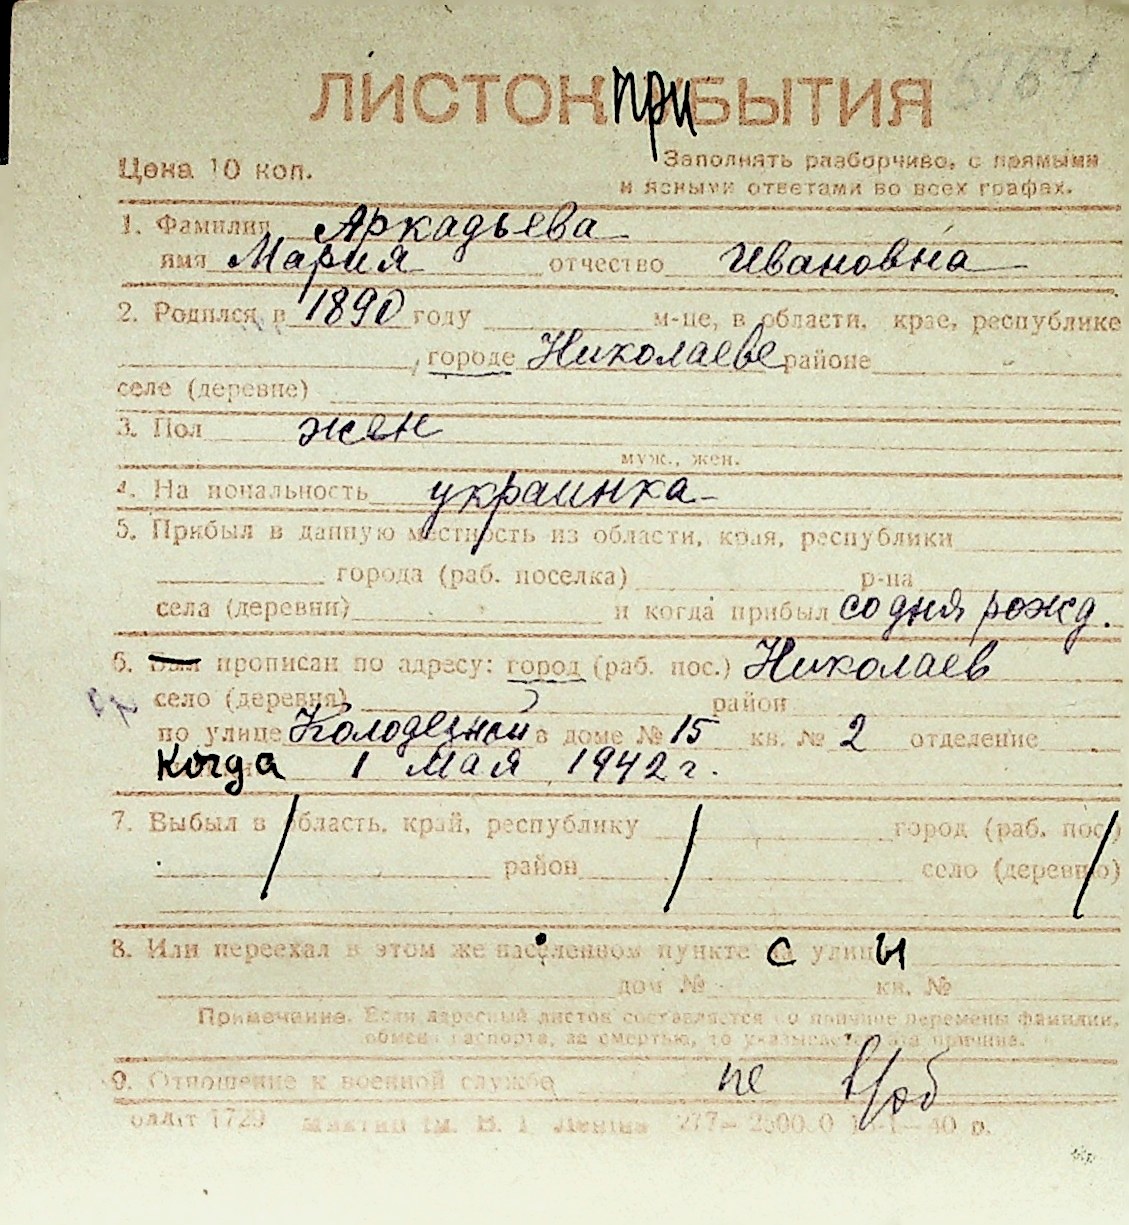 5164
ЛИСТОК ПРИБЫТИЯ
Цена 10 коп.
Заполнять разборчиво, с прямыми
и ясными ответами во всех графах.
1. Фамилия Аркадьева
имя Мария отчество Ивановна
2. Родился в 1890 году м-це, в области, крае, республике
, городе Николаеве районе
селе (деревне)
3. Пол жен
муж., жен.
4. Национальность украинка
5. Прибыл в данную местность из области, края, республики
города (раб. поселка) р-на
села (деревни) и когда прибыл со дня рожд.
6. Был прописан по адресу: город (раб. пос.) Николаев
село (деревня) район
по улице Колодезной в доме № 15 кв. № 2 отделение
Когда 1 Мая 1942 г.
7. Выбыл в область, край, республику город (раб. пос.)
район село (деревню)
8. Или переехал в этом же населенном пункте с улицы
дом № кв. №
Примечание. Если адресный листок составляется по причине перемены фамилии,
обмена паспорта, за смертью, то указывается эта причина.
9. Отношение к военной службе не в/об
1729 им. В. І. Леніна 277— 40 р.